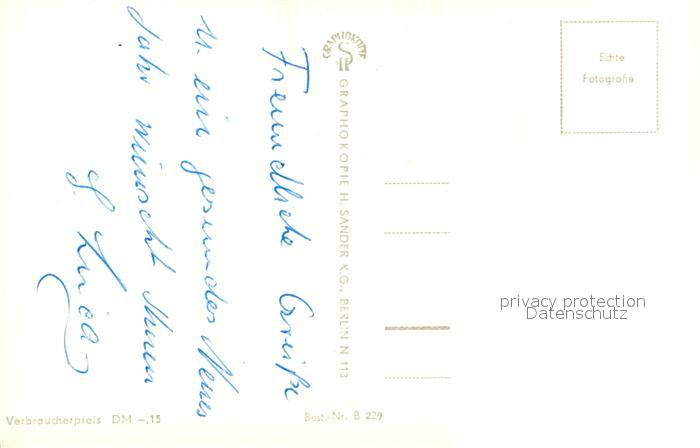 Freundliche Grüße
u. ein gesundes Neues
Jahr wünscht Ihnen
GRAPHOKOPIE
GRAPHOKOPIE H. SANDER K.G., BERLIN N 113
Echte
Fotografie
privacy protection
Datenschutz
Verbraucherpreis DM –,15
Best.-Nr. B 229